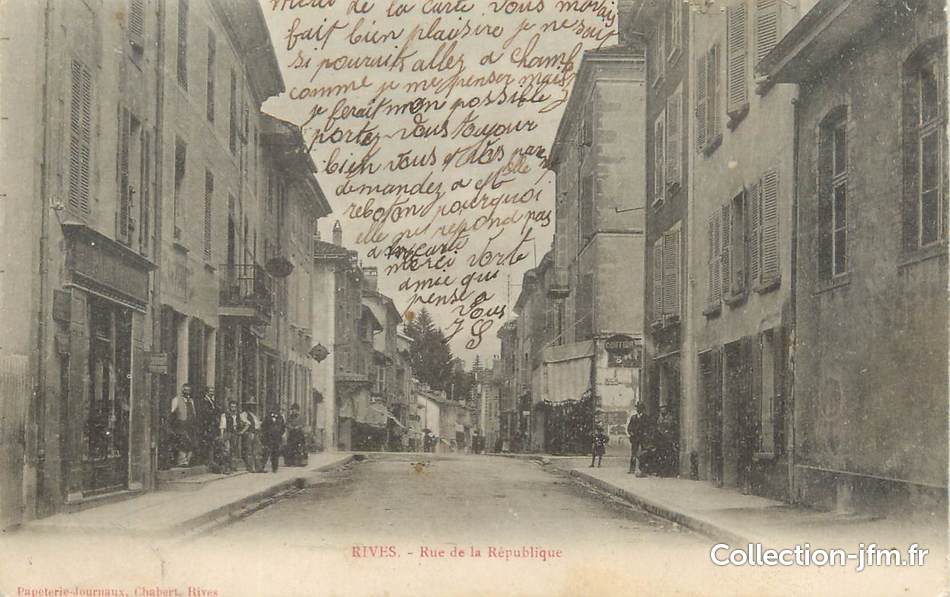 Merci de la carte vous m'avais
fait bien plaisire je ne sait
si pourait allez a Champ
comme je me penser mais
je ferait mon possible
portez vous toujour
bien vous et les
demandez a elle
pourquoi
elle ne repond pas
a carte
merci Votre
amie qui
pense a
vous
J S
COIFFEUR
RIVES. - Rue de la République
Papeterie-Journaux, Chabert, Rives
Collection-jfm.fr